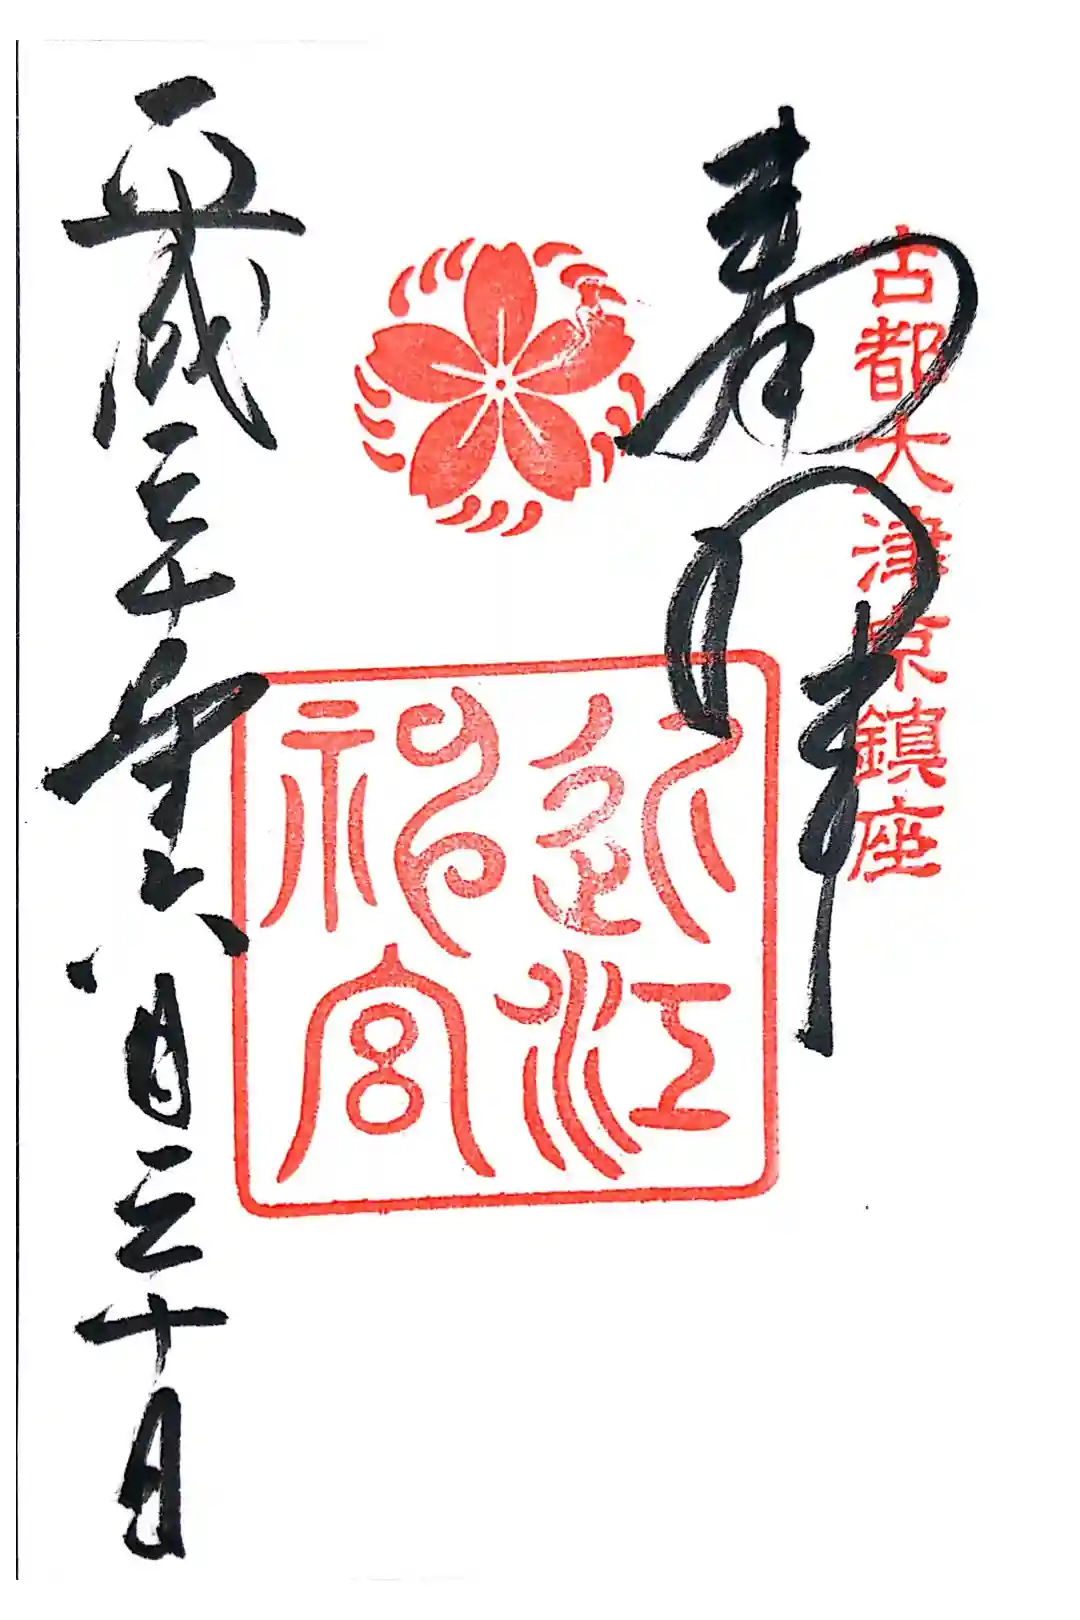 奉拝
古都大津京鎮座
近江
神宮
平成三十年六月三十日